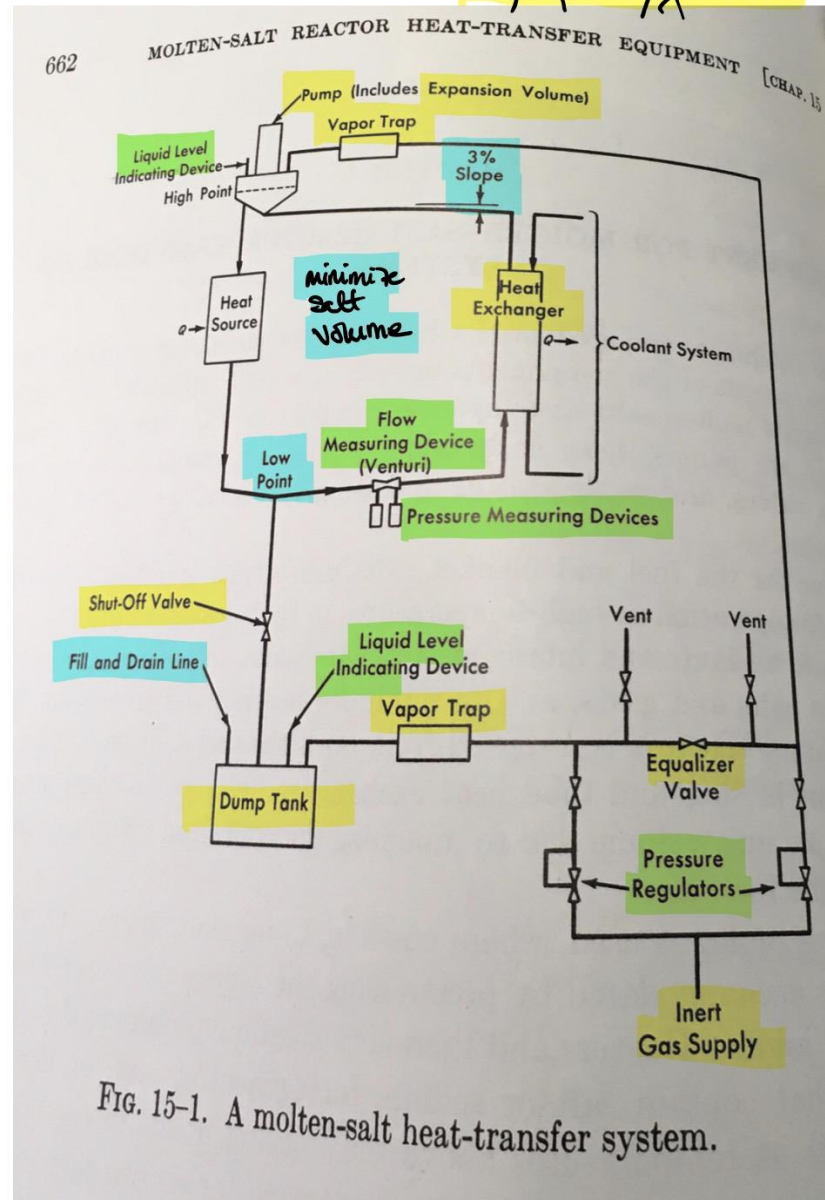 662
MOLTEN-SALT REACTOR HEAT-TRANSFER EQUIPMENT
[CHAP. 15
Pump (Includes Expansion Volume)
Vapor Trap
Liquid Level
Indicating Device
High Point
3%
Slope
minimize
salt
volume
Heat
Source
Q
Heat
Exchanger
Q
Coolant System
Flow
Measuring Device
(Venturi)
Low
Point
Pressure Measuring Devices
Shut-Off Valve
Fill and Drain Line
Liquid Level
Indicating Device
Vapor Trap
Vent
Vent
Equalizer
Valve
Dump Tank
Pressure
Regulators
Inert
Gas Supply
FIG. 15-1. A molten-salt heat-transfer system.